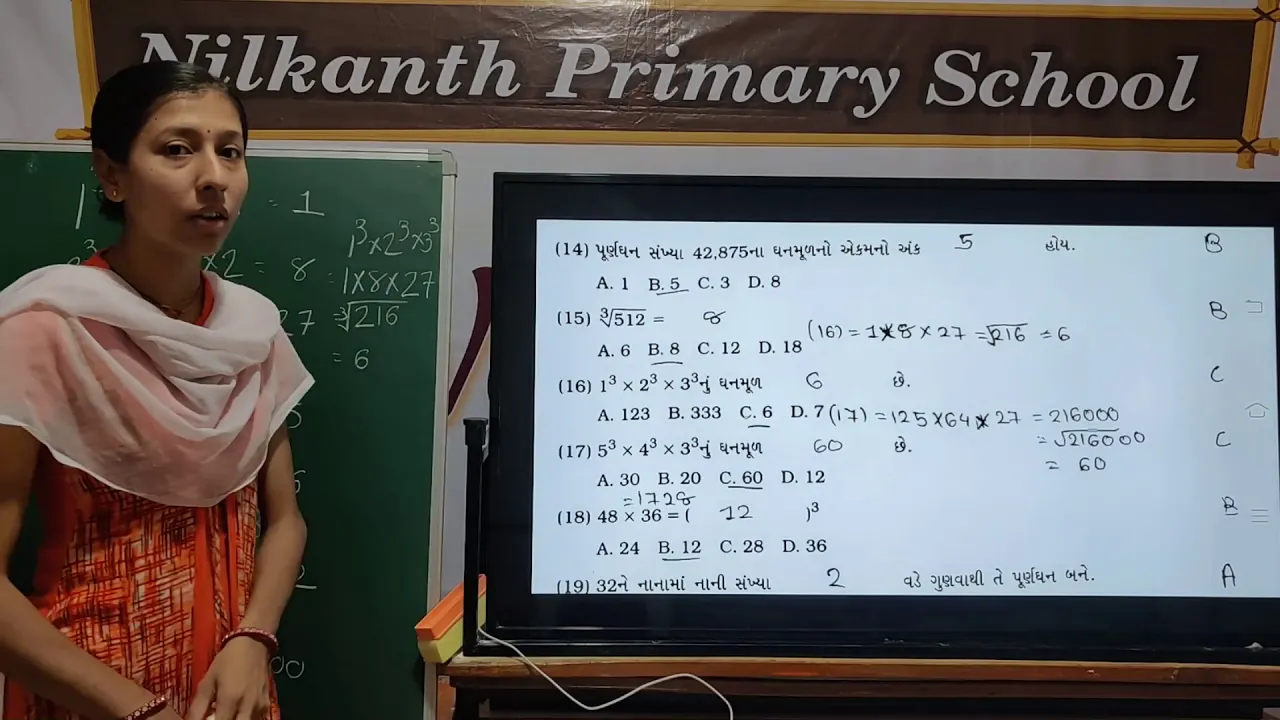 Nilkanth Primary School
= 1
1³×2³×3³
×2 = 8
=1×8×27
27
=∛216
= 6
(14) પૂર્ણઘન સંખ્યા 42,875ના ઘનમૂળનો એકમનો અંક 5 હોય. B
A. 1 B. 5 C. 3 D. 8
(15) ∛512 = 8 B
A. 6 B. 8 C. 12 D. 18
(16) = 1×8×27 = √216 = 6
(16) 1³ × 2³ × 3³નું ઘનમૂળ 6 છે. C
A. 123 B. 333 C. 6 D. 7
(17) = 125×64×27 = 216000
= √216000
= 60
(17) 5³ × 4³ × 3³નું ઘનમૂળ 60 છે. C
A. 30 B. 20 C. 60 D. 12
=1728
(18) 48 × 36 = ( 12 )³ B
A. 24 B. 12 C. 28 D. 36
(19) 32ને નાનામાં નાની સંખ્યા 2 વડે ગુણવાથી તે પૂર્ણઘન બને. A